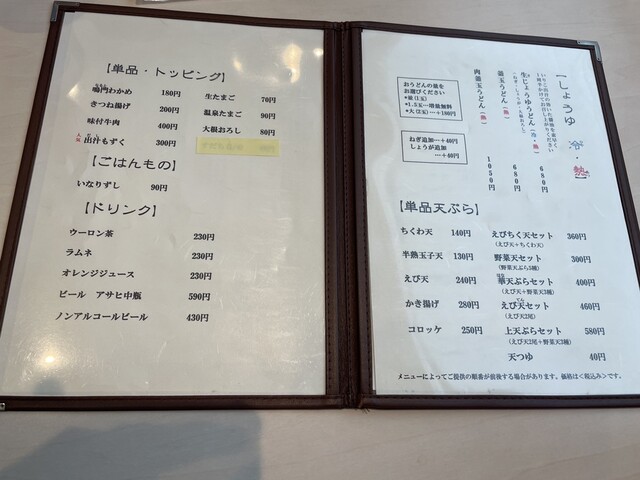 【単品・トッピング】
鳴門わかめ 180円
きつね揚げ 200円
味付牛肉 400円
人気 出汁もずく 300円
生たまご 70円
温泉たまご 90円
大根おろし 80円
【ごはんもの】
いなりずし 90円
【ドリンク】
ウーロン茶 230円
ラムネ 230円
オレンジジュース 230円
ビール アサヒ中瓶 590円
ノンアルコールビール 430円
【しょうゆ 冷・熱】
生じょうゆうどん(冷・熱) 680円
釜玉うどん(熱) 680円
肉釜玉うどん(熱) 1050円
おうどんの量を
お選びください
*並(1玉)
*1.5玉…増量無料
*大(2玉)…+100円
ねぎ追加…+40円
しょうが追加
…+40円
【単品天ぷら】
ちくわ天 140円
半熟玉子天 130円
えび天 240円
かき揚げ 280円
コロッケ 250円
えびちく天セット 360円
(えび天+ちくわ天)
野菜天セット 300円
(野菜天ぷら3種)
華天ぷらセット 400円
(えび天+野菜天3種)
えび天セット 460円
(えび天2尾)
上天ぷらセット 580円
(えび天2尾+野菜天3種)
天つゆ 40円
メニューによってご提供の順番が前後する場合があります。価格は<税込み>です。